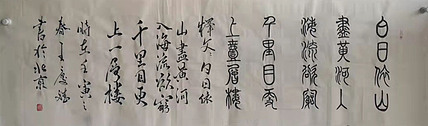 白日依山
盡黃河入
海流欲窮
千里目更
上壹層樓
釋文 白日依
山盡黃河
入海流欲窮
千里目更
上一層樓
時在壬寅之
春王慶
書於北京